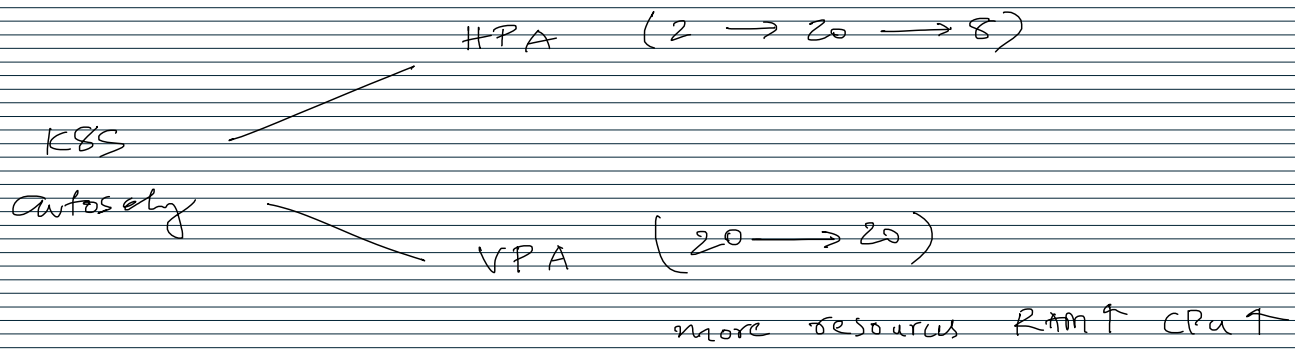 HPA (2 → 20 → 8)
K8S
VPA (20 → 20)
more resources RAM↑ CPU↑